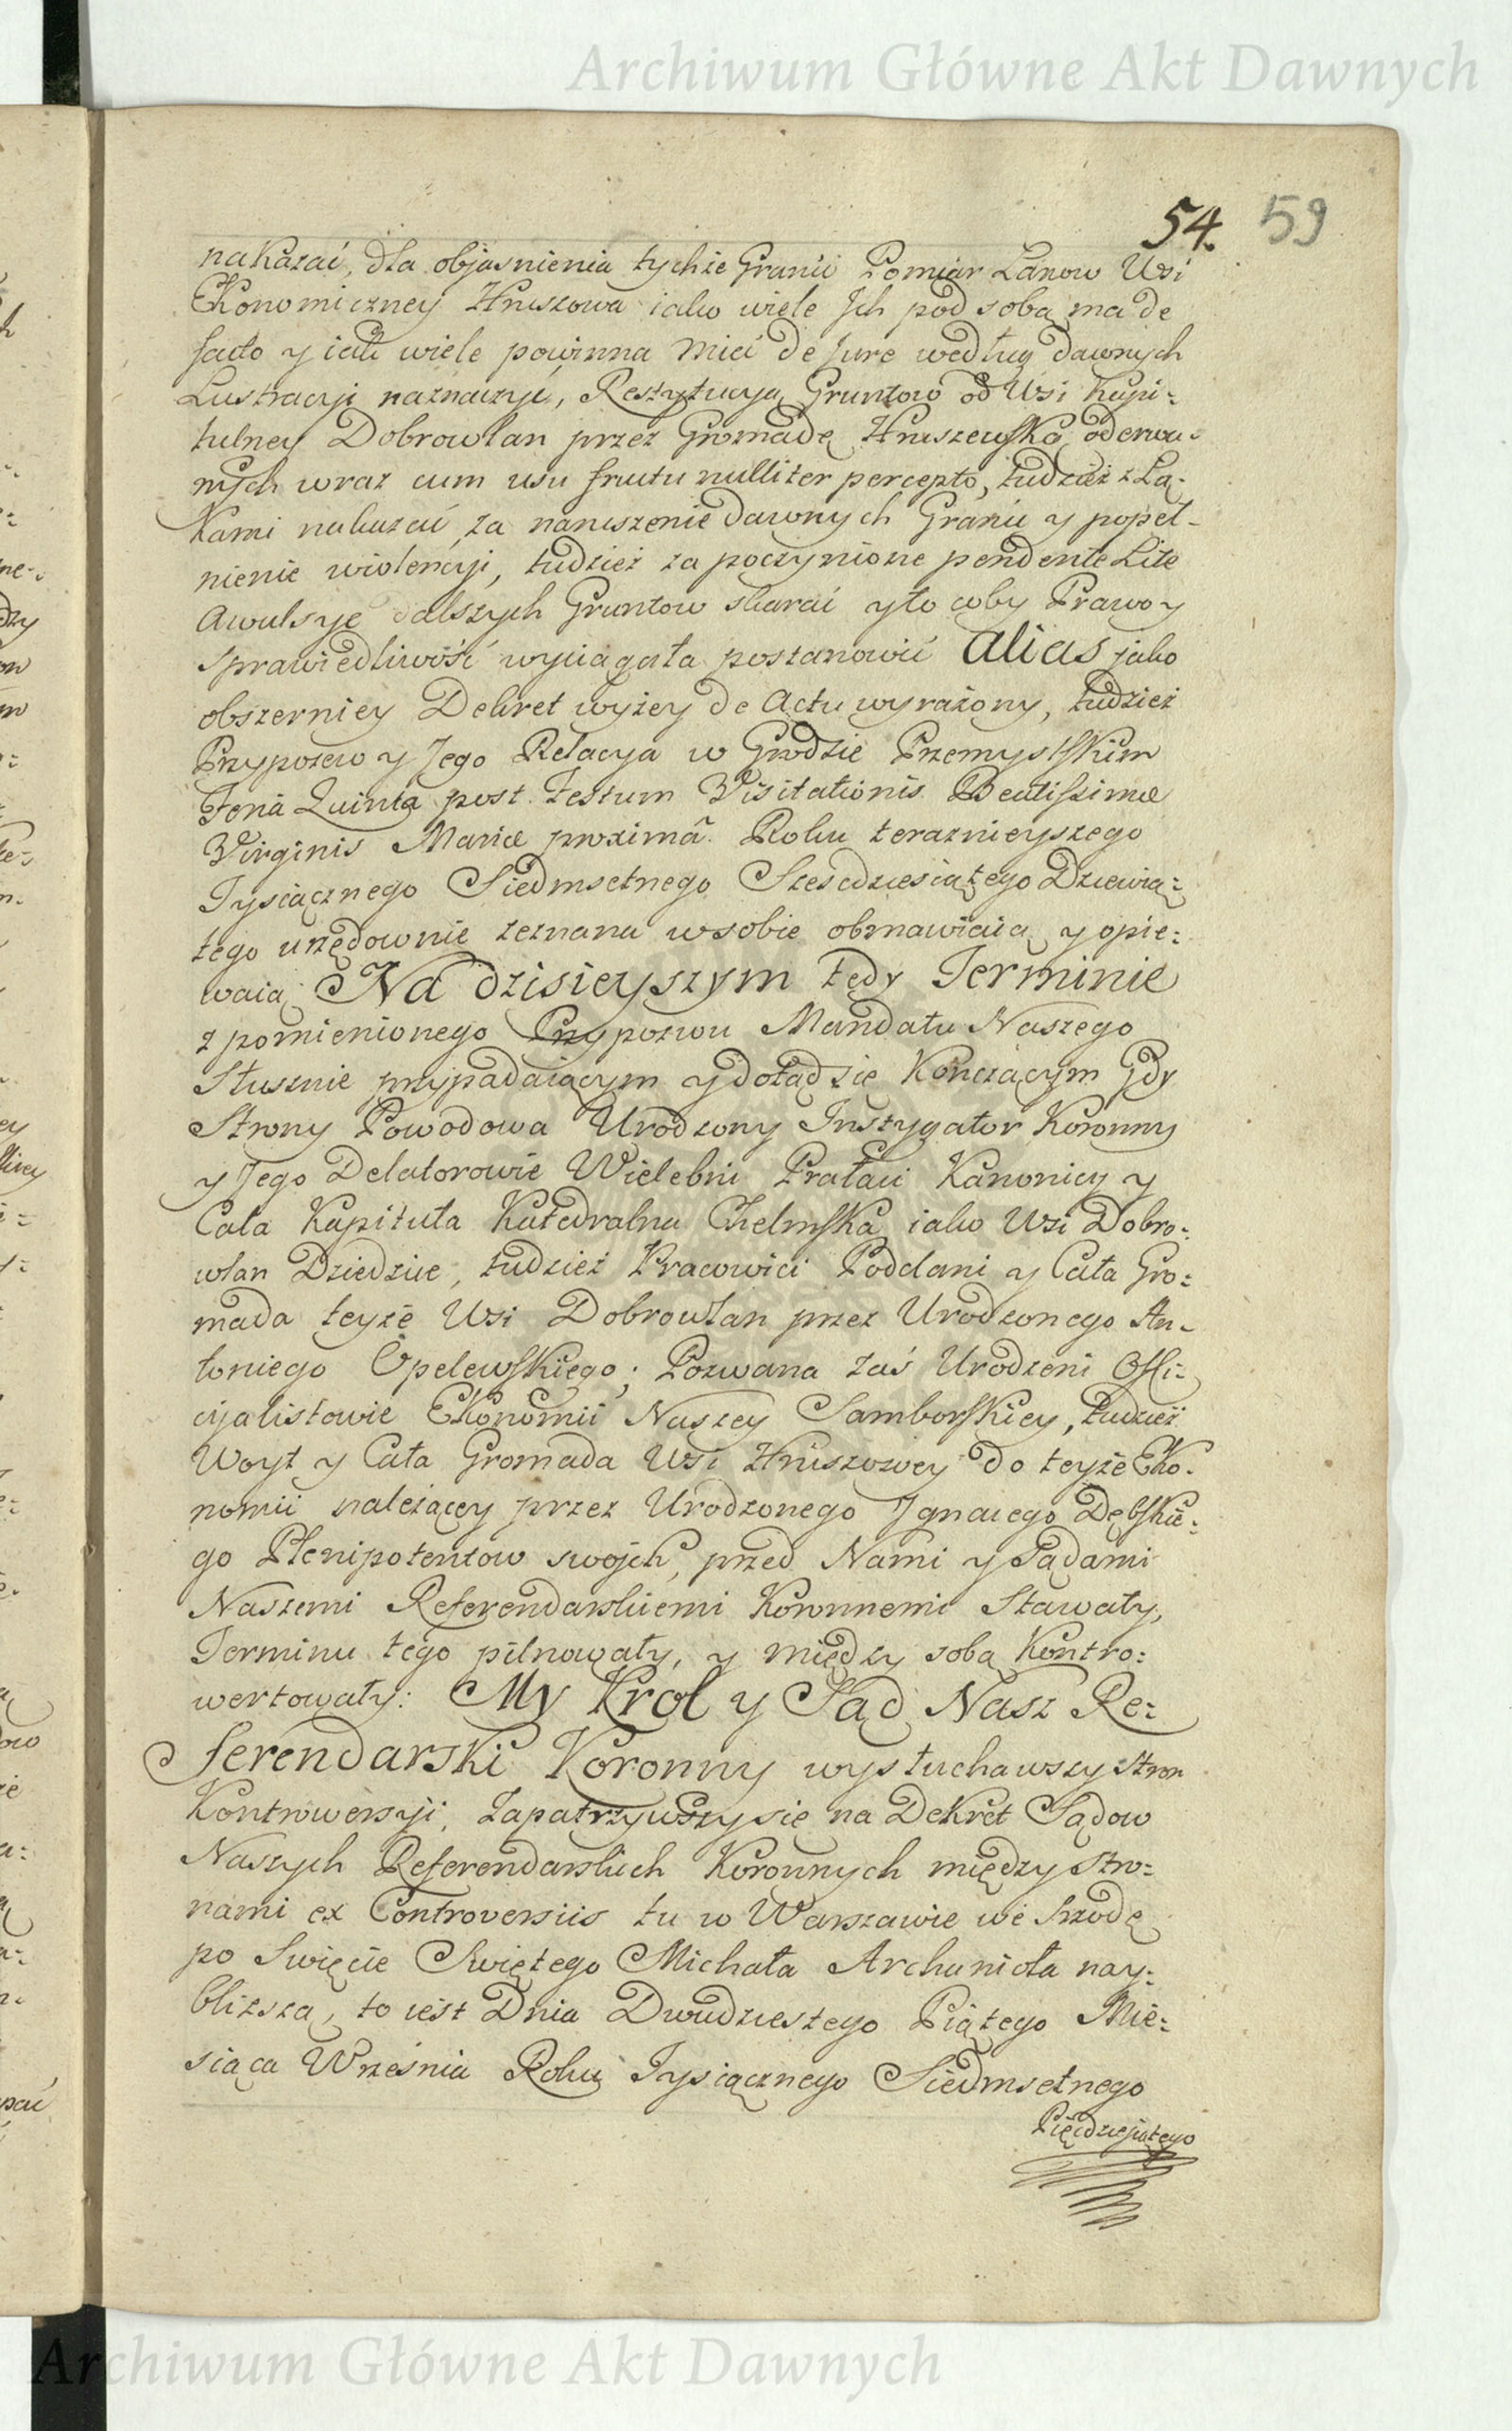 Archiwum Główne Akt Dawnych
54. 59
nakazać, dla objasnienia tychże Granic Pomiar Łanow Wsi
Ekonomiczney Hruszowa iako wiele Jch pod sobą ma de
facto y iak wiele powinna mieć de Jure według dawnych
Lustracyi naznaczyć, Restytucyą Gruntow od Wsi Kapi-
tulney Dobrowlan przez Gromadę Hruszewską oderwa-
nych wraz cum usu fructu nulliter percepto, tudzież z Łą-
kami nakazać, za naruszenie dawnych Granic y popeł-
nienie wiolencyi, tudzież za poczynione pendente Lite
Awulsye dalszych Gruntow skarać y to coby Prawo y
sprawiedliwość wyciągała postanowić alias jako
obszerniey Dekret wyżey de Actu wyrażony, tudzież
Przypozew y Jego Relacya w Grodzie Przemyslskim
Feria Quinta post Festum Visitationis Beatissimæ
Virginis Mariæ proximâ Roku teraznieyszego
Tysiącznego Siedmsetnego Szescdziesiątego Dziewią-
tego urzędownie zeznana w sobie obmawiaią y opie-
waią Na dzisieyszym tedy Terminie
z pomienionego Przypozwu Mandatu Naszego
słusznie przypadaiącym y dotąd się Kończącym Gdy
Strony Powodowa Urodzony Instygator Koronny
y Jego Delatorowie Wielebni Prałaci Kanonicy y
Cała Kapituła Katedralna Chełmska iako Wsi Dobro-
wlan Dziedzice, tudzież Pracowici Poddani y Cała Gro-
mada teyże Wsi Dobrowlan przez Urodzonego An-
toniego Opelewskiego; Pozwana zaś Urodzeni Offi-
cyalistowie Ekonomii Naszey Samborskiey, tudzież
Woyt y Cała Gromada Wsi Hruszowey do teyże Eko-
nomii należącey przez Urodzonego Jgnacego Dębskie-
go Plenipotentow swoich, przed Nami y Sądami
Naszemi Referendarskiemi Koronnemi Stawały,
Terminu tego pilnowały, y między sobą Kontro-
wertowały: My Krol y Sąd Nasz Re-
ferendarski Koronny wysłuchawszy stron
Kontrowersyi, zapatrzywszy się na Dekret Sądow
Naszych Referendarskich Koronnych między Stro-
nami ex Controversiis tu w Warszawie we Srzodę
po Swięcie Swiętego Michała Archanioła nay-
bliższą, to iest Dnia Dwudziestego Piątego Mie-
siąca Września Roku Tysiącznego Siedmsetnego
Pięćdziesiątego
Archiwum Główne Akt Dawnych